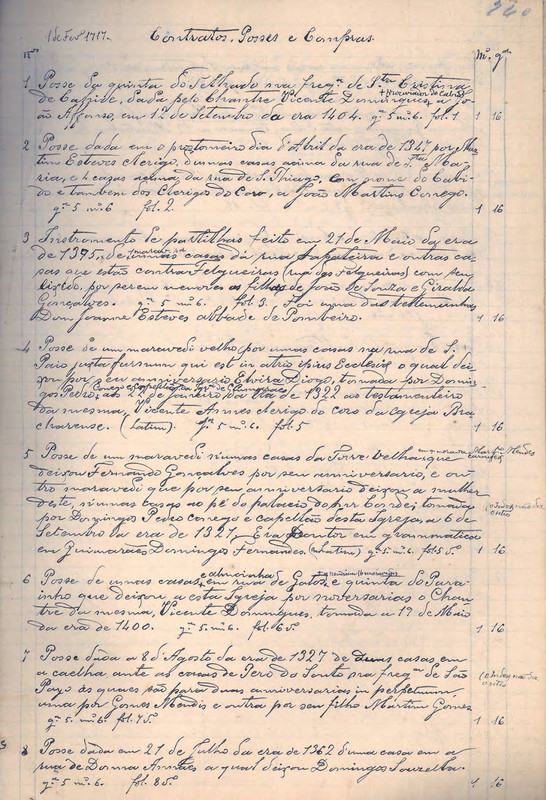 240
1 de Fevº 1717.
Contratos, Posses e Compras.
nos Mº. gª.
1 Posse da quinta do Telhado na freg.ª de S.ta Cristina
+ Provisor do Cabido
de Cahide, dada pelo Chantre Vicente Domingues a Jo-
ão Affonso, em 12 de Setembro da era 1404. gª. 5 mº 6. fol. 1 1 16
2 Posse dada em o postomeiro dia d'Abril da era de 1347 por Mar-
tim Esteves clerigo, d'umas casas acima da rua de S.ta Ma-
ria, e 4 casas acima da rua de S. Thiago, com nome do Cabi-
do e tambem dos Clerigos do Coro, a João Martins Conego.
gª. 5 mº 6. fol. 2. 1 16
3 Instrumento de partilhas feito em 21 de Maio da era
de 1375, de umas casas da rua Sapateira e outras ca-
sas que estão contra Felgueiras (rua das Felgueiras) com seu
por serem menores as filhas de João de Souza e Giralda
Gonçalves. gª. 5 mº 6. fol 3. Foi uma das testemunhas
Dom Joanne Esteves abbade de Pombeiro. 1 16
4 Posse de um maravedi velho por umas casas na rua de S.
Paio juxta furnum qui est in atrio ipsius Ecclesie o qual dei-
xou por seu anniversario Elvira Diogo, tomada por Domin-
gos Pedro, aos 22 de Janeiro da era de 1322 ao testamenteiro
da mesma, Vicente Annes clerigo do coro da Igreja Bra-
charense. (Latim). gª. 5 mº 6. fol. 5 1 16
5 Posse de um maravedi n'umas casas da Torre Velha, que
em q morava Martim Mendes
deixou Fernando Gonçalves por seu anniversario, e ou-
tro maravedi que por seu anniversario deixou a mulher
deste, n'umas casas ao pé do palacio tomada
por Domingos Pedro conego e capellão desta Igreja, a 6 de
Setembro da era de 1327. Era Doutor em grammatica
em Guimarães, Domingos Fernandes. (Latim) gª. 5 mº 6. fol. 5 vº 1 16
(o Index não diz
o sitio
6 Posse de umas casas em rua de Gatos e quinta do Para-
inho que deixou a esta Igreja por noversarios o Chan-
tre da mesma, Vicente Domingues, tomada a 19 de Maio
da era de 1400. gª. 5. mº 6. fol. 6 vº 1 16
7 Posse dada a 8 de Agosto da era de 1327 de duas casas em
a caelha, ante as casas de Pero do Souto na freg.ª de São
Payo as quaes são para duas anniversarias in perpetuum,
uma por Gomes Mendes e outra por seu filho Martim Gomes
gª. 5 mº 6. fol. 7 vº 1 16
(o Index não diz
o sitio
8 Posse dada em 21 de Julho da era de 1362 d'uma casa em a
rua de Donna Annes a qual deixou Domingos Louzella.
gª. 5 mº 6. fol. 8 vº 1 16